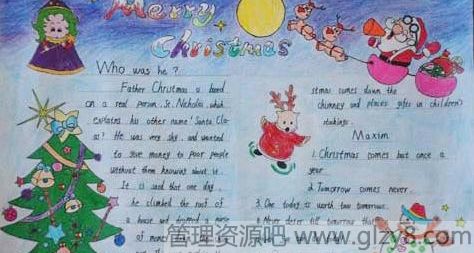 Merry
Christmas
Who was he?
Father Christmas is based
on a real person, St. Nicholas, which
explains his other name 'Santa Cla-
us'. He was very shy and wanted
to give money to poor people
without them knowing about it.
It is said that one day,
he climbed the roof of
a house and dropped a purse
of money
stmas comes down the
chimney and places gifts in children's
stockings.
Maxim
1. Christmas comes but once a
year.
2. Tomorrow comes never.
3. One today is worth two tomorrows.
4. Never defer till tomorrow that
管理资源吧 www.glzy8.com